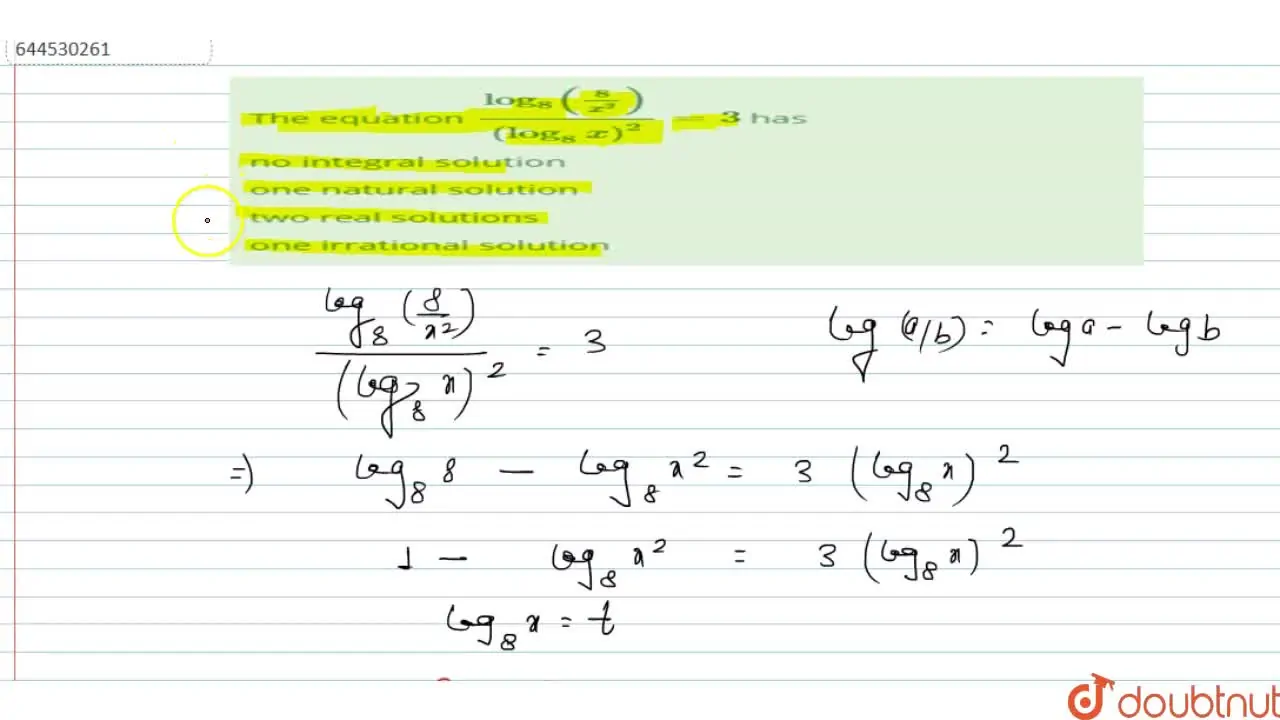 644530261
The equation log₈(8/x²) / (log₈ x)² = 3 has
no integral solution
one natural solution
two real solutions
one irrational solution
log₈ (8/x²) / (log₈ x)² = 3
log (a/b) = log a - log b
=) log₈ 8 - log₈ x² = 3 (log₈ x)²
1 - log₈ x² = 3 (log₈ x)²
log₈ x = t
doubtnut